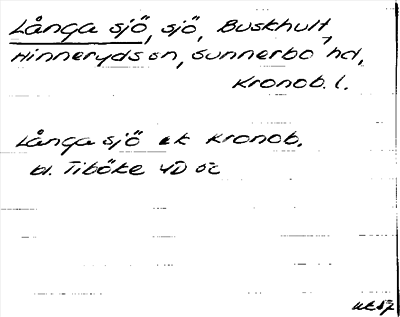 Långa sjö, sjö, Buskhult,
Hinneryds sn, Sunnerbo hd,
Kronob. l.
Långa sjö ek Kronob.
bl. Tiböke 4D 5c